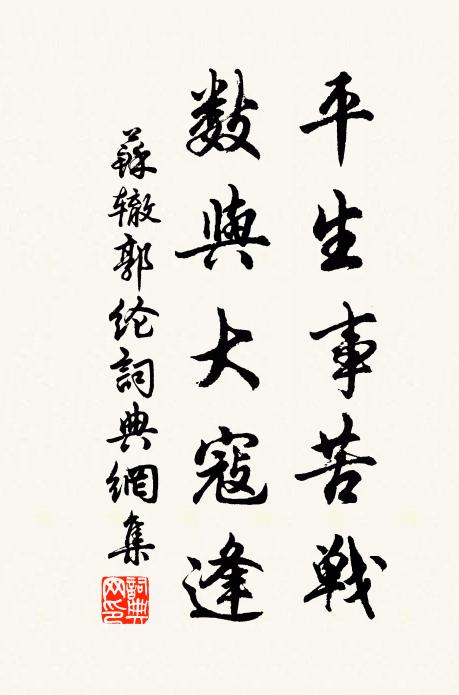 平生事苦戰
數與大寇逢
蘇辙郭纶詞典網集
詞典网印